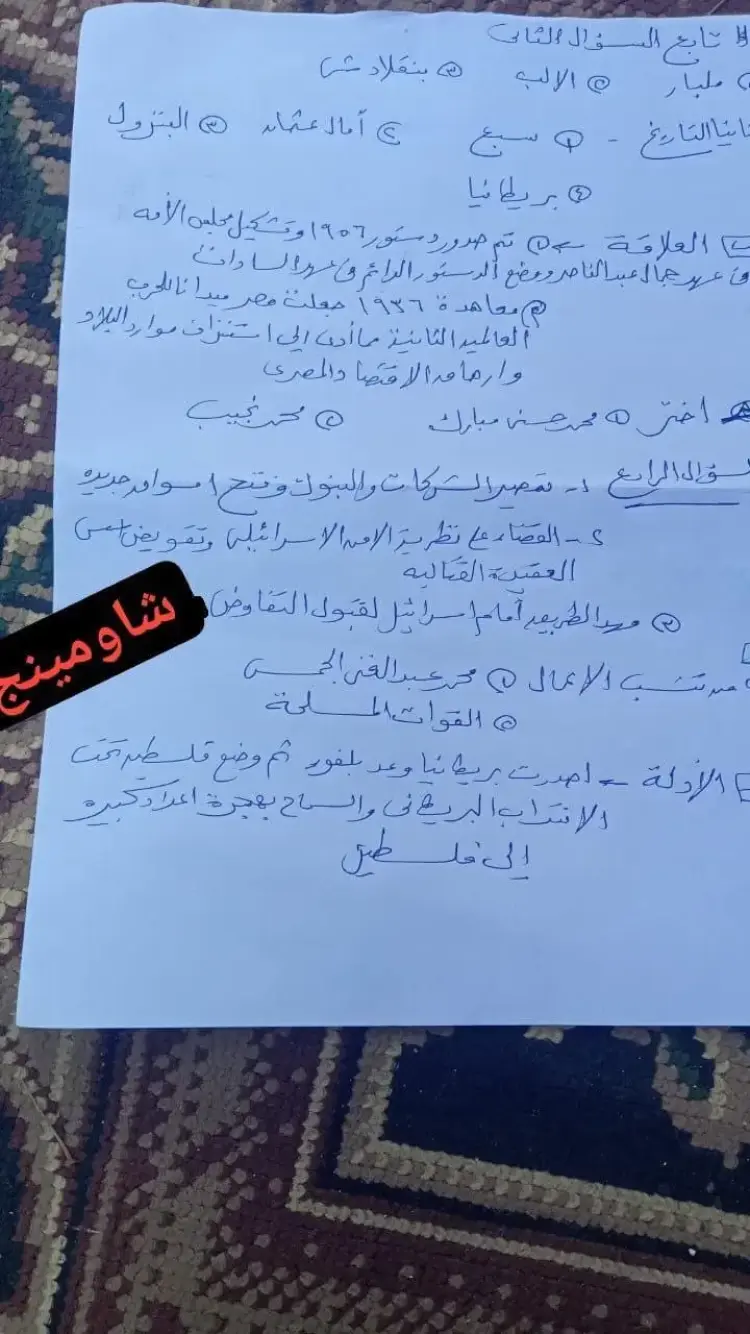 تابع السؤال الثانى
مليار ② الالب ③ بنقلادش
ثانيا التاريخ - ① سبع ② أمال عثمان ③ البترول
④ بريطانيا
العلاقة ← ① تم صدور دستور ١٩٥٦ وتشكيل مجلس الأمه
فى عهد جمال عبد الناصر ووضع الدستور الدائم فى عهد السادات
② معاهدة ١٩٣٦ جعلت مصر ميدانا للحرب
العالميه الثانية مما أدى الى استنزاف موارد البلاد
وارهاق الاقتصاد المصرى
اختر ① محمد حسنى مبارك ② محمد نجيب
السؤال الرابع ١- تمصير الشركات والبنوك وفتح اسواق جديده
٢- القضاء على نظرية الامن الاسرائيلى وتقويض اسس
العقيدة القتاليه
③ مهد الطريق أمام اسرائيل لقبول التفاوض
من تنسب الاعمال ① محمد عبد الغنى الجمسى
② القوات المسلحة
الأدلة - اصدرت بريطانيا وعد بلفور ثم وضع فلسطين تحت
الانتداب البريطانى والسماح بهجرة اعداد كبيره
إلى فلسطين
شاومينج